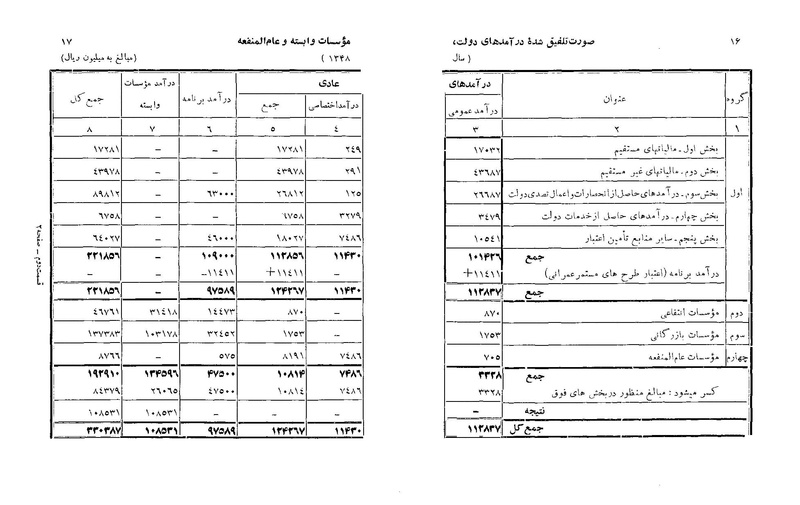 ۱۶
صورت تلفیق شدهٔ درآمدهای دولت،
( سال
گروه عنوان درآمدهای
درآمد عمومی
۱ ۲ ۳
بخش اول ـ مالیاتهای مستقیم ۱۷۰۳۲
بخش دوم ـ مالیاتهای غیر مستقیم ۴۳۶۸۷
اول بخش سوم ـ درآمدهای حاصل از انحصارات و اعمال تصدی دولت ۲۶۶۸۷
بخش چهارم ـ درآمدهای حاصل از خدمات دولت ۳۴۷۹
بخش پنجم ـ سایر منابع تأمین اعتبار ۱۰۵۴۱
جمع ۱۰۱۴۲۶
درآمد برنامه (اعتبار طرح های مستمر عمرانی) ۱۱۴۱۱+
جمع ۱۱۲۸۳۷
دوم مؤسسات انتفاعی ۸۷۰
سوم مؤسسات بازرگانی ۱۷۵۳
چهارم مؤسسات عام‌المنفعه ۷۰۵
جمع ۳۳۲۸
کسر میشود : مبالغ منظور در بخش های فوق ۳۳۲۸
نتیجه –
جمع کل ۱۱۲۸۳۷
مؤسسات وابسته و عام‌المنفعه
۱۷
۱۳۴۸ )
(مبالغ به میلیون ریال)
عادی درآمد برنامه درآمد مؤسسات وابسته جمع کل
درآمد اختصاصی جمع
۴ ۵ ۶ ۷ ۸
۲۴۹ ۱۷۲۸۱ – – ۱۷۲۸۱
۲۹۱ ۴۳۹۷۸ – – ۴۳۹۷۸
۱۲۵ ۲۶۸۱۲ ۶۳۰۰۰ – ۸۹۸۱۲
۳۲۷۹ ۶۷۵۸ – – ۶۷۵۸
۷۴۸۶ ۱۸۰۲۷ ۴۶۰۰۰ – ۶۴۰۲۷
۱۱۴۳۰ ۱۱۲۸۵۶ ۱۰۹۰۰۰ – ۲۲۱۸۵۶
– ۱۱۴۱۱+ ۱۱۴۱۱– – –
۱۱۴۳۰ ۱۲۴۲۶۷ ۹۷۵۸۹ – ۲۲۱۸۵۶
– ۸۷۰ ۱۴۴۷۳ ۳۱۴۱۸ ۴۶۷۶۱
– ۱۷۵۳ ۳۲۴۵۲ ۱۰۳۱۷۸ ۱۳۷۳۸۳
۷۴۸۶ ۸۱۹۱ ۵۷۵ – ۸۷۶۶
۷۴۸۶ ۱۰۸۱۴ ۴۷۵۰۰ ۱۳۴۵۹۶ ۱۹۲۹۱۰
۷۴۸۶ ۱۰۸۱۴ ۴۷۵۰۰ ۲۶۰۶۵ ۸۴۳۷۹
– – – ۱۰۸۵۳۱ ۱۰۸۵۳۱
۱۱۴۳۰ ۱۲۴۲۶۷ ۹۷۵۸۹ ۱۰۸۵۳۱ ۳۳۰۳۸۷
قسمت دوم ـ صفحه ۲